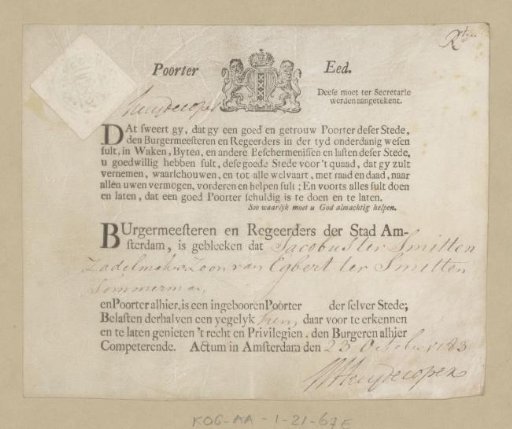 Poorter Eed.
Deese moet ter Secretarie
werden aangetekent.
DAt sweert gy, dat gy een goed en getrouw Poorter deser Stede,
den Burgermeesteren en Regeerders in der tyd onderdanig wesen
sult, in Waken, Byten, en andere Beschermenissen en lasten deser Stede,
u goedwillig hebben sult, dese goede Stede voor 't quaad, dat gy zult
vernemen, waarschouwen, en tot alle welvaart, met raad en daad, naar
allen uwen vermogen, vorderen en helpen sult; En voorts alles sult doen
en laten, dat een goed Poorter schuldig is te doen en te laten.
Soo waarlyk moet u God almachtig helpen.
BUrgermeesteren en Regeerders der Stad Am-
sterdam, is gebleeken dat Jacobus ter Smitten
Zadelmaker Zoon van Egbert ter Smitten
en Poorter alhier, is een ingebooren Poorter der selver Stede;
Belasten derhalven een yegelyk hem, daar voor te erkennen
en te laten genieten 't recht en Privilegien, den Burgeren alhier
Competerende. Actum in Amsterdam den 23 October
KOG-AA-1-21-67E